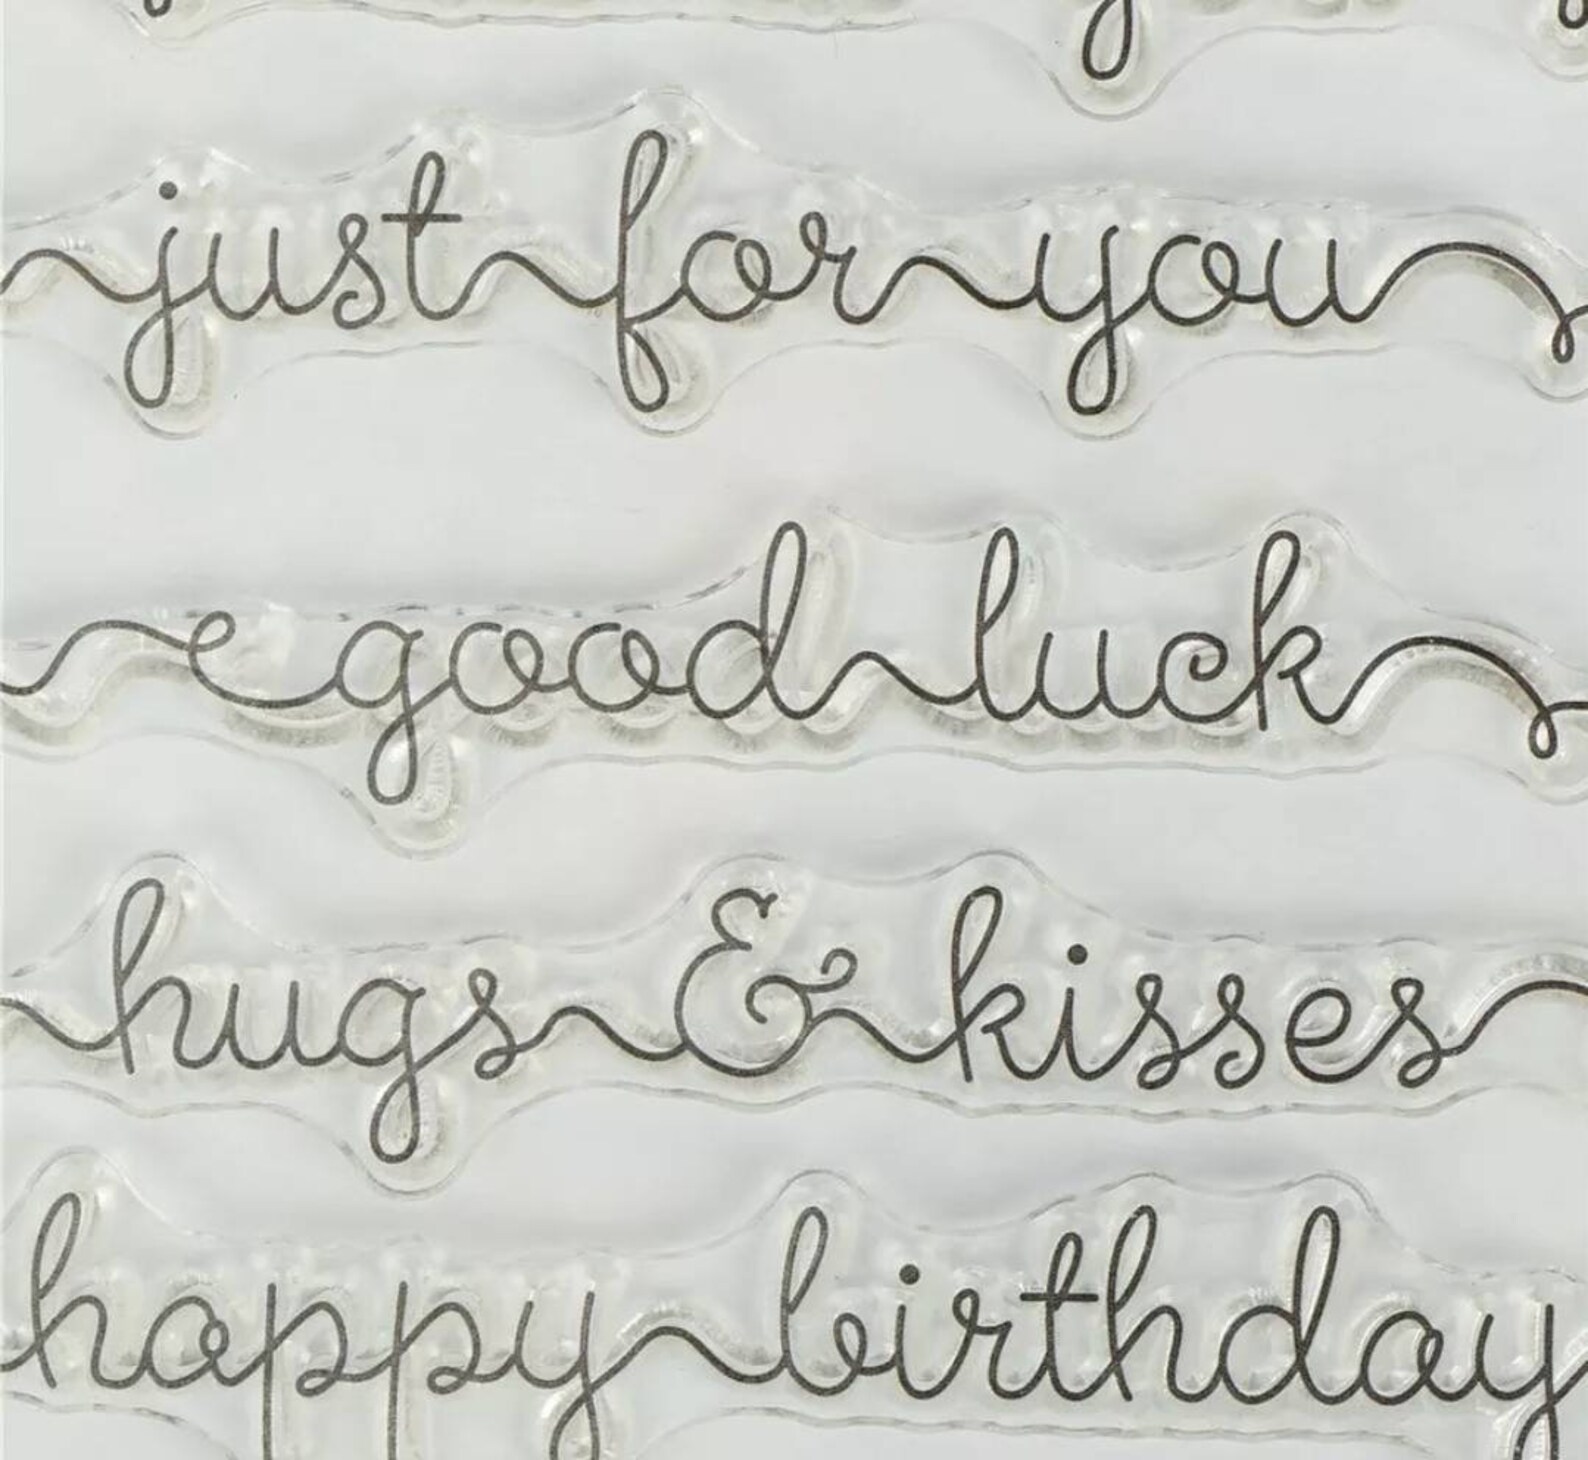 just for you
good luck
hugs & kisses
happy birthday